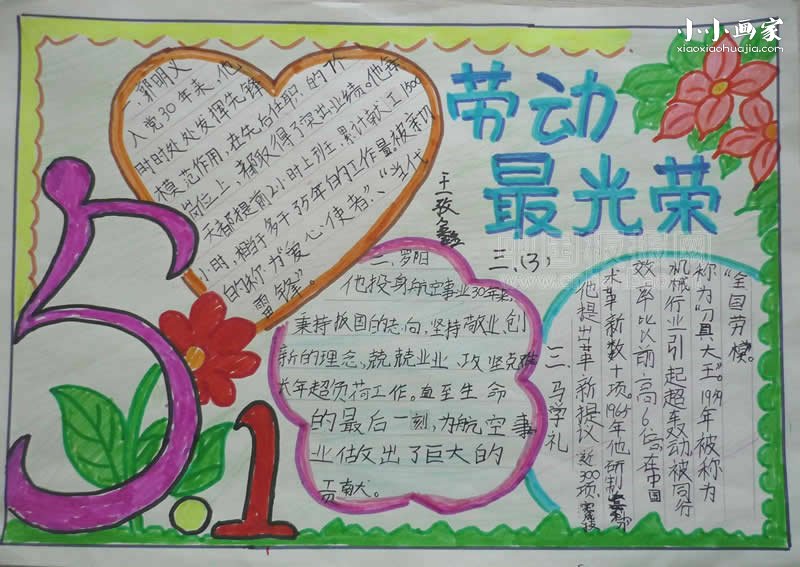 小小画家
xiaoxiaohuajia.com
劳动
最光荣
郭明义
入党30年来,他
时时处处发挥先锋
模范作用,在先后任职的
岗位上,都取得了突出业绩。他每
天都提前2小时上班,累计献工1500
小时,相当于多干35年的工作量,被亲切
的称为“爱心使者”、“当代
雷锋”。
三、(3)
二、罗阳
他投身航空事业30年来,
秉持报国的志向,坚持敬业创
新的理念、兢兢业业、攻坚克难
长年超负荷工作。直至生命
的最后一刻,为航空事
业做出了巨大的
贡献。
三、马学礼
“全国劳模。
称为“刀具大王”。1959年被称为
机械行业引起轰动被同行
效率比以前高6倍,在中国
术革新数十项。1965年他研制
他提出革新提议近300项,
5.1